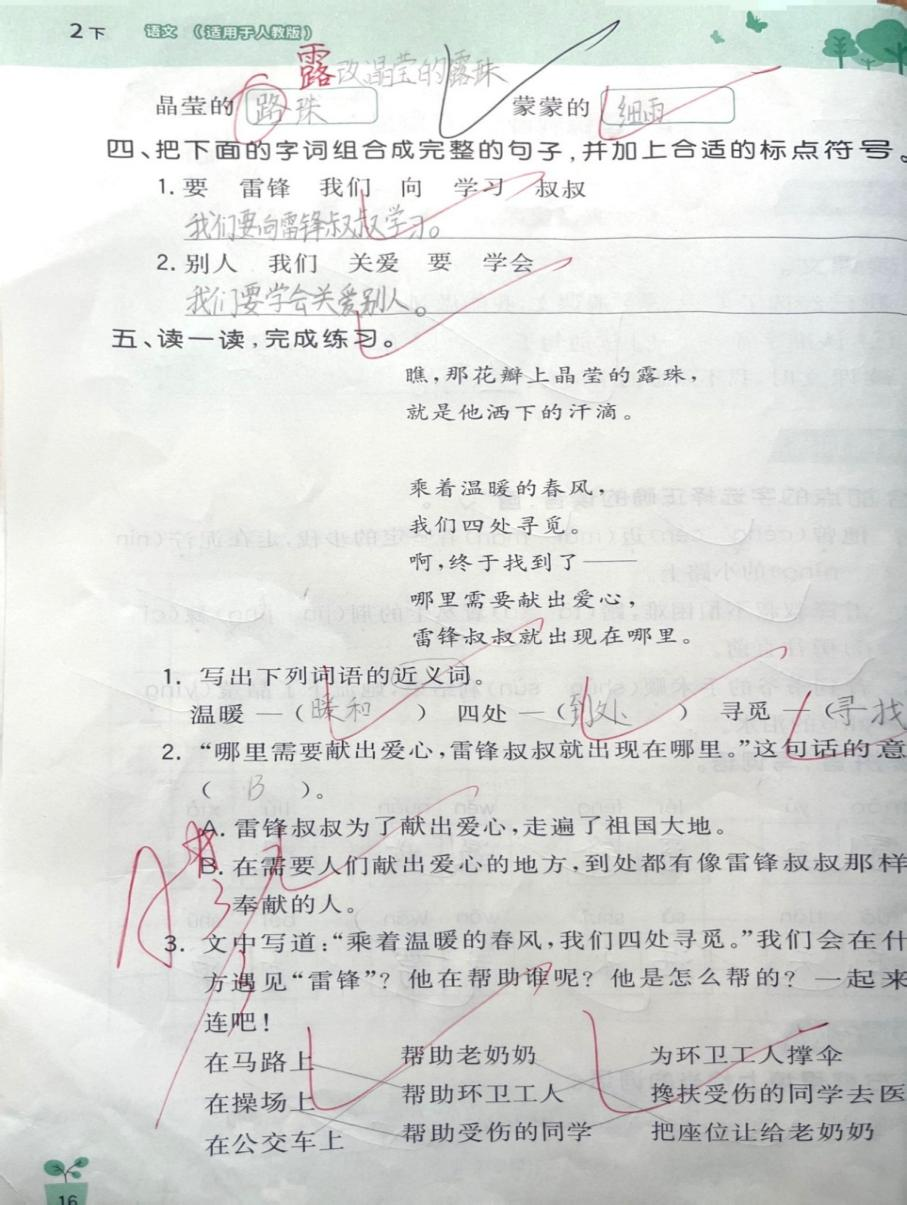 2下 语文 (适用于人教版)
露改晶莹的露珠
晶莹的 路珠 蒙蒙的 细雨
四、把下面的字词组合成完整的句子,并加上合适的标点符号。
1. 要 雷锋 我们 向 学习 叔叔
我们要向雷锋叔叔学习。
2. 别人 我们 关爱 要 学会
我们要学会关爱别人。
五、读一读,完成练习。
瞧,那花瓣上晶莹的露珠,
就是他洒下的汗滴。
乘着温暖的春风,
我们四处寻觅。
啊,终于找到了——
哪里需要献出爱心,
雷锋叔叔就出现在哪里。
1. 写出下列词语的近义词。
温暖—(暖和) 四处—(到处) 寻觅—(寻找
2. “哪里需要献出爱心,雷锋叔叔就出现在哪里。”这句话的意
( B )。
A. 雷锋叔叔为了献出爱心,走遍了祖国大地。
B. 在需要人们献出爱心的地方,到处都有像雷锋叔叔那样
奉献的人。
3. 文中写道:“乘着温暖的春风,我们四处寻觅。”我们会在什
方遇见“雷锋”? 他在帮助谁呢? 他是怎么帮的? 一起来
连吧!
在马路上 帮助老奶奶 为环卫工人撑伞
在操场上 帮助环卫工人 搀扶受伤的同学去医
在公交车上 帮助受伤的同学 把座位让给老奶奶
16